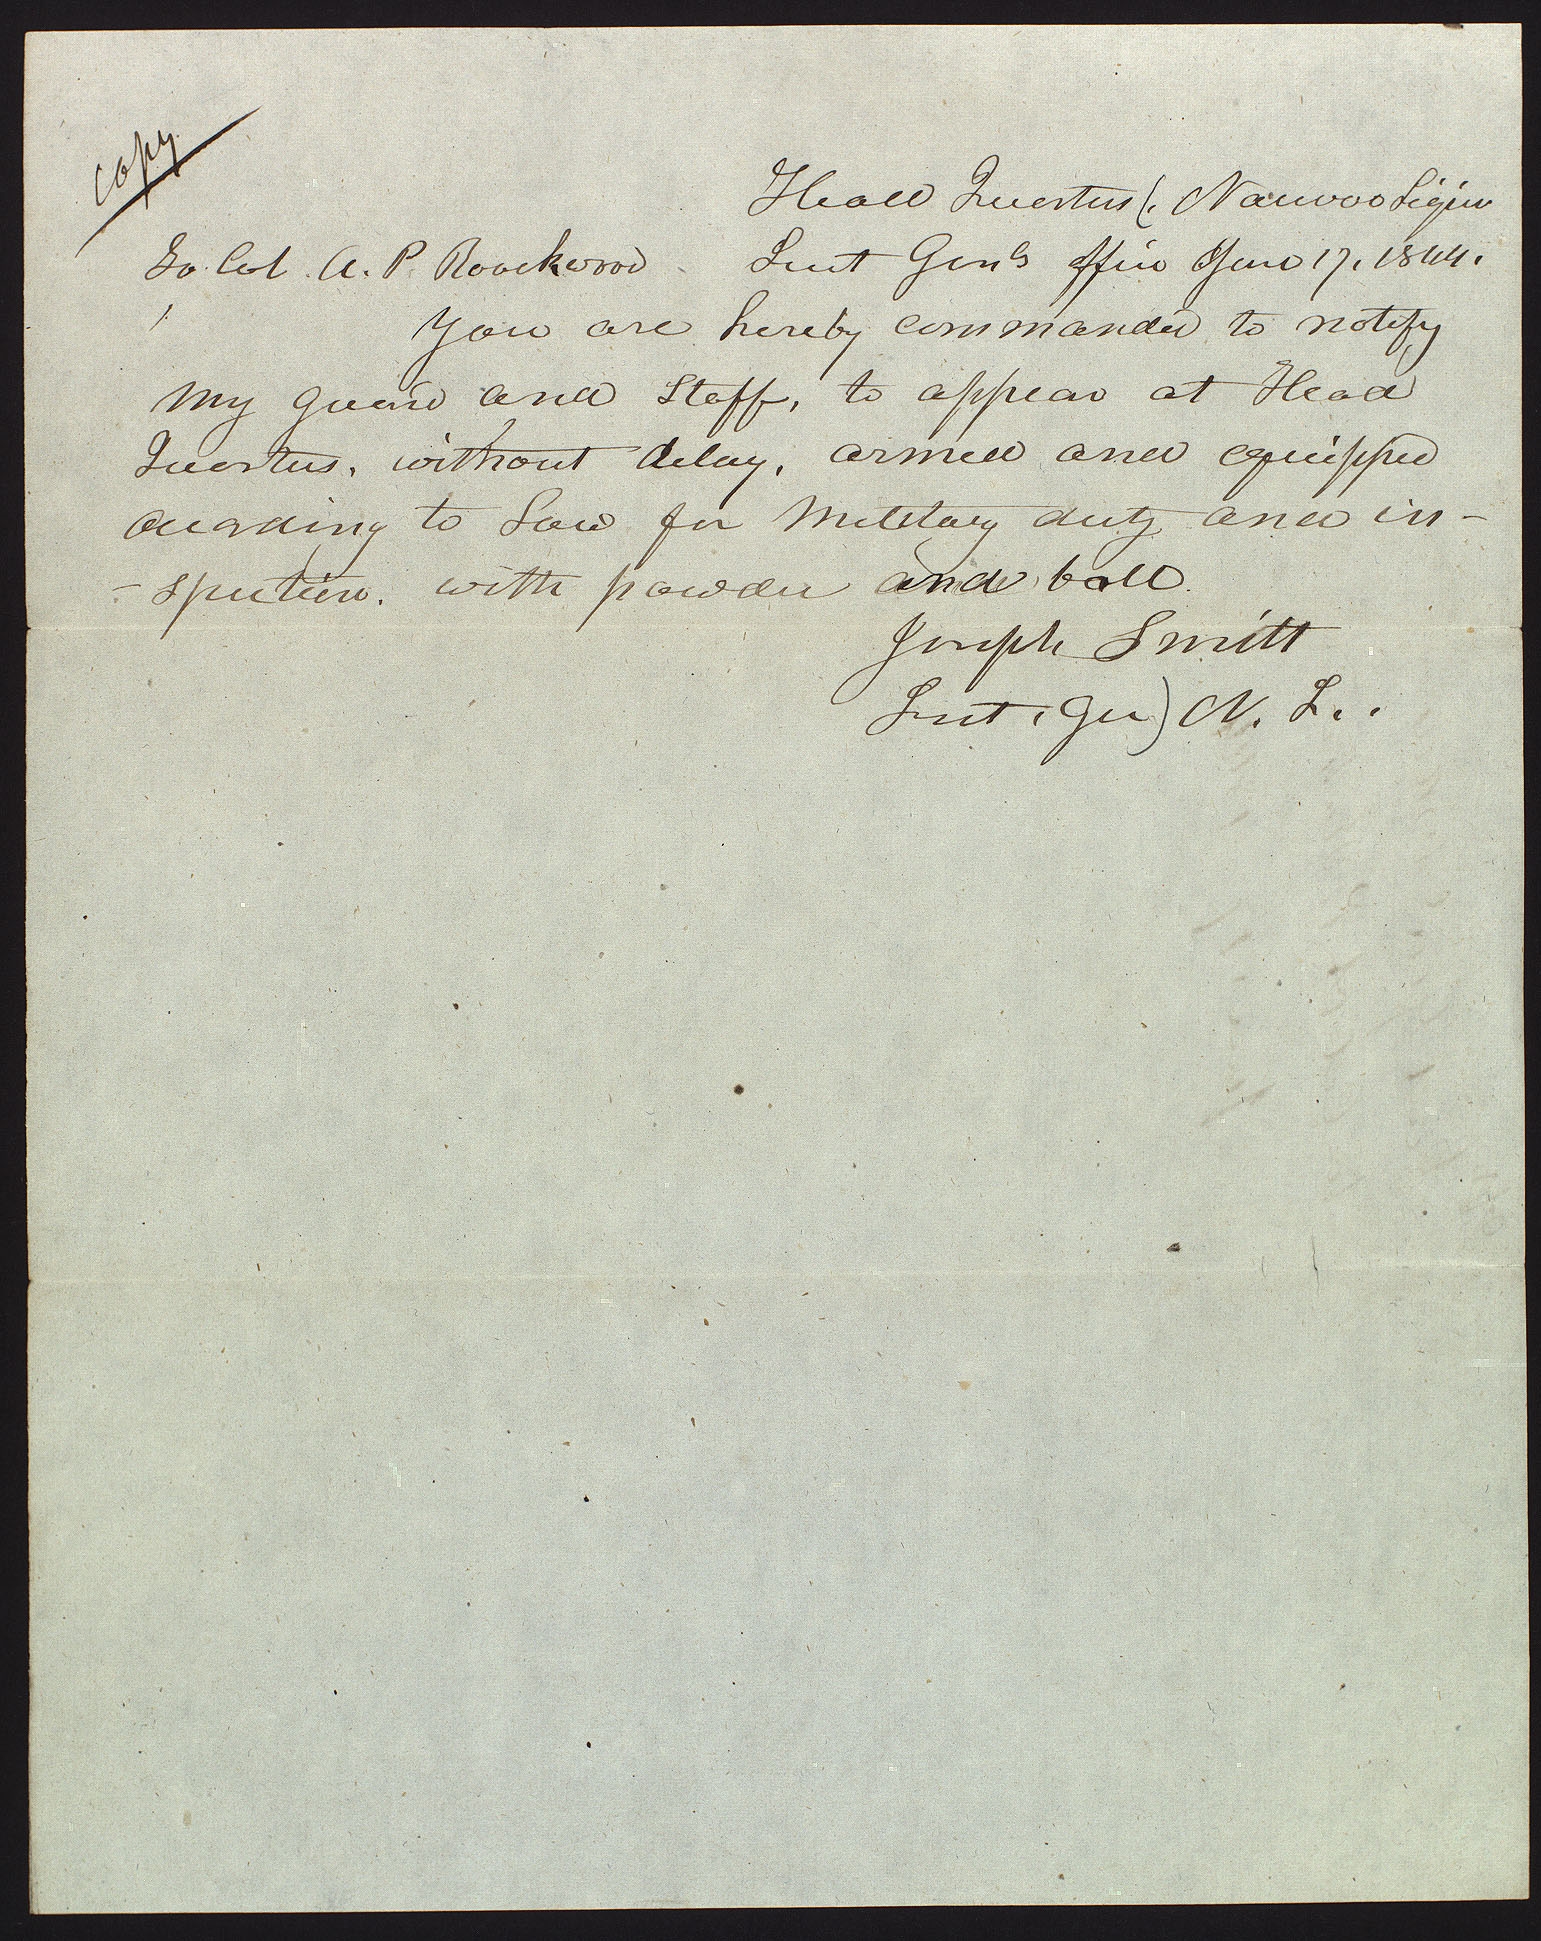 copy
Head Quarters, Nauvoo Legion
To Col. A. P. Rockwood Lieut Gen's office June 17, 1844.
You are hereby commanded to notify
my guard and staff, to appear at Head
Quarters, without delay, armed and equipped
according to Law for Military duty and in-
-spection. with powder and ball.
Joseph Smith
Lieut. Gen) N. L..